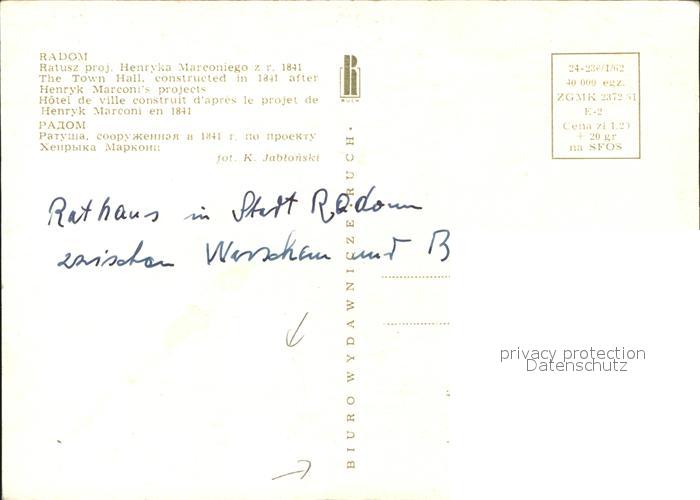 RADOM
Ratusz proj. Henryka Marconiego z r. 1841
The Town Hall, constructed in 1841 after
Henryk Marconi's projects
Hôtel de ville construit d'après le projet de
Henryk Marconi en 1841
РАДОМ
Ратуша, сооруженная в 1841 г. по проекту
Хенрыка Маркони
fot. K. Jabłoński
RUCH
BIURO WYDAWNICZE RUCH
40 000 egz.
E-2
Cena zł 1.20
+ 20 gr
na SFOS
Rathaus in Stadt Radom
zwischen Warschau und
privacy protection
Datenschutz